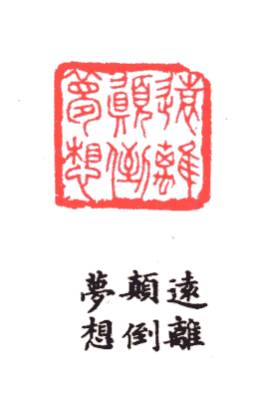 遠離
顛倒
夢想
遠離
顛倒
夢想